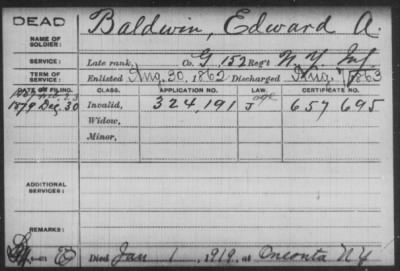 DEAD
Baldwin, Edward A.
NAME OF
SOLDIER:
SERVICE:
Late rank, Co. G, 152 Reg't N. Y. Inf.
TERM OF
SERVICE:
Enlisted Aug. 30, 1862 Discharged 1863
DATE OF FILING.
CLASS.
APPLICATION NO.
LAW.
CERTIFICATE NO.
1879 Dec. 30
Invalid,
324,191
age
657 695
Widow,
Minor,
ADDITIONAL
SERVICES:
REMARKS:
Died Jan 1, 1919, at Oneonta N.Y.